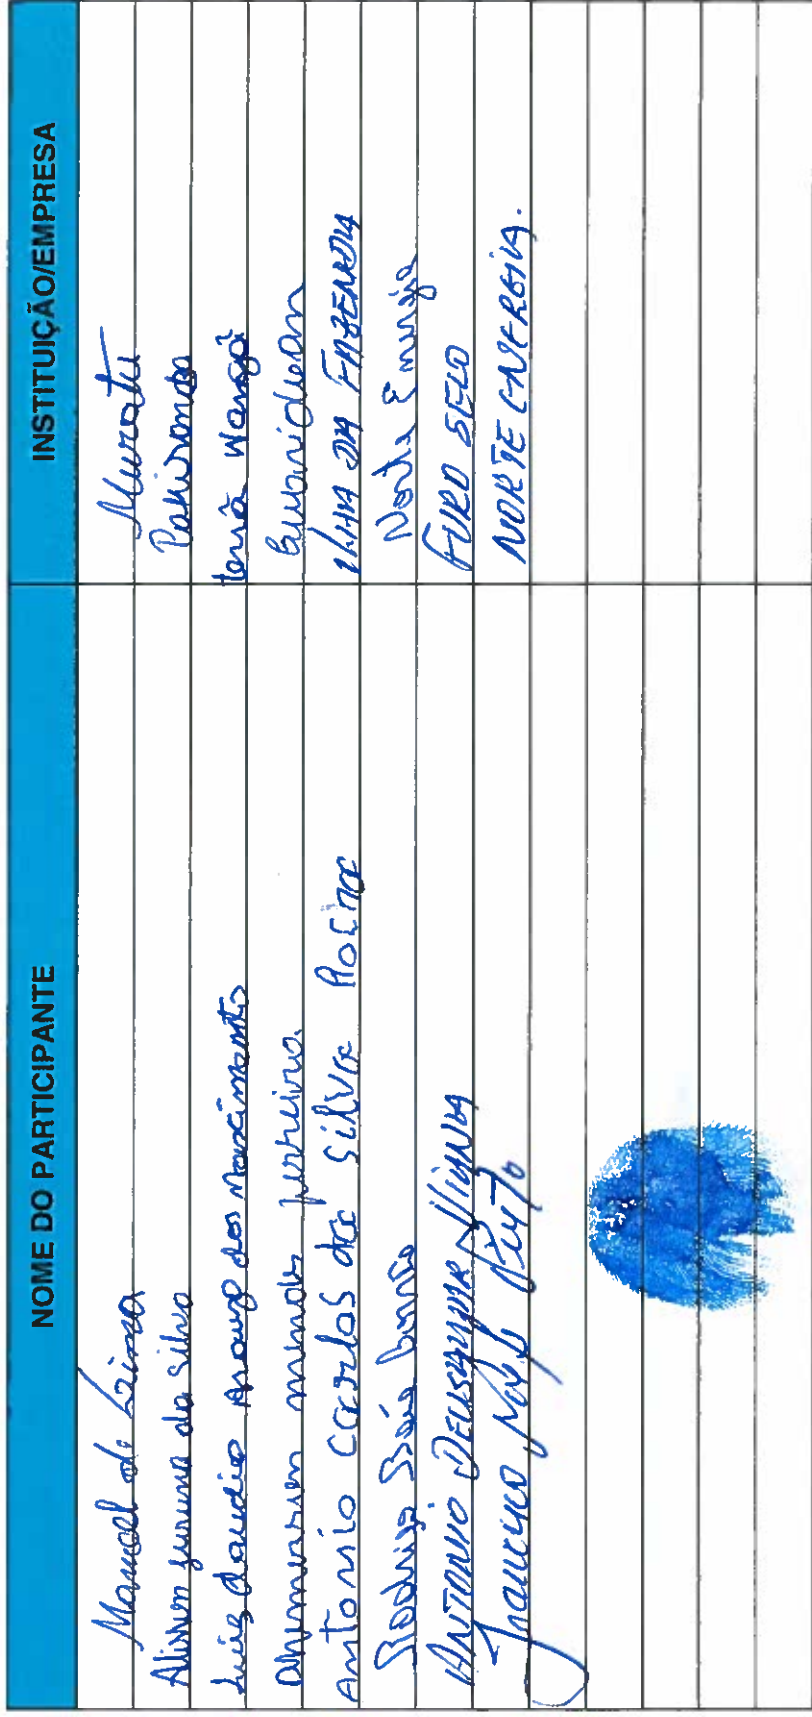 NOME DO PARTICIPANTE INSTITUIÇÃO/EMPRESA
Manoel de Lima Muratu
Alisson juruna da Silva Paquisamba
Luis claudio Araujo dos Nascimento terrã Wangã
mendes ferreira
Antonio Carlos da Silva Rocha ILHA DA FAZENDA
Rodrigo Norte Energia
ANTONIO VIANA FURO SECO
Francisco NORTE ENERGIA.